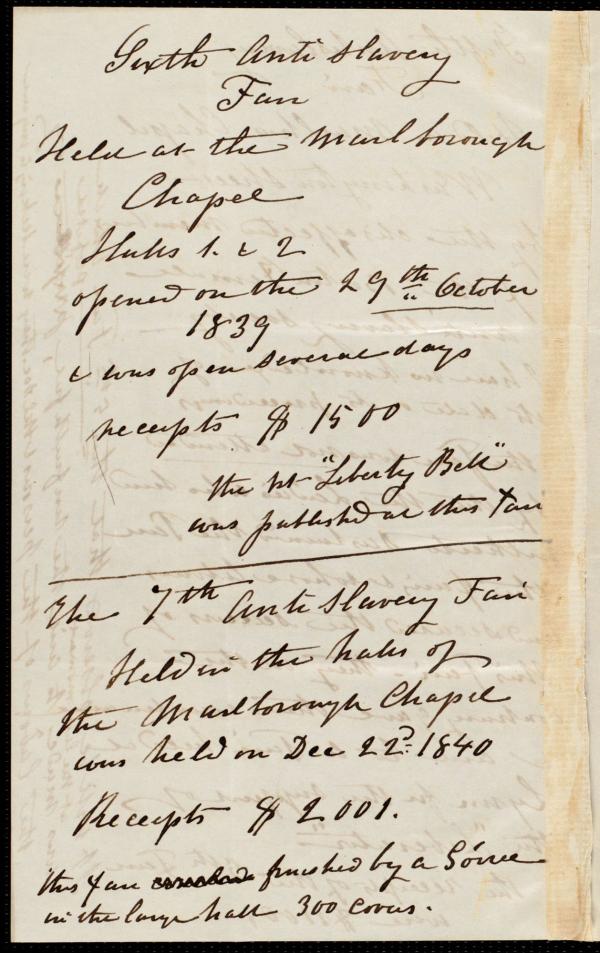 Sixth Anti Slavery
Fair
Held at the Marlborough
Chapel
Halls 1. & 2
opened on the 29th October
1839
& was open several days
receipts $ 1500
the 1st "Liberty Bell"
was published at this Fair
The 7th Anti Slavery Fair
Held in the halls of
the Marlborough Chapel
was held on Dec 22d 1840
Receipts $ 2001.
this Fair finished by a Soiree
in the large hall 300 covers.